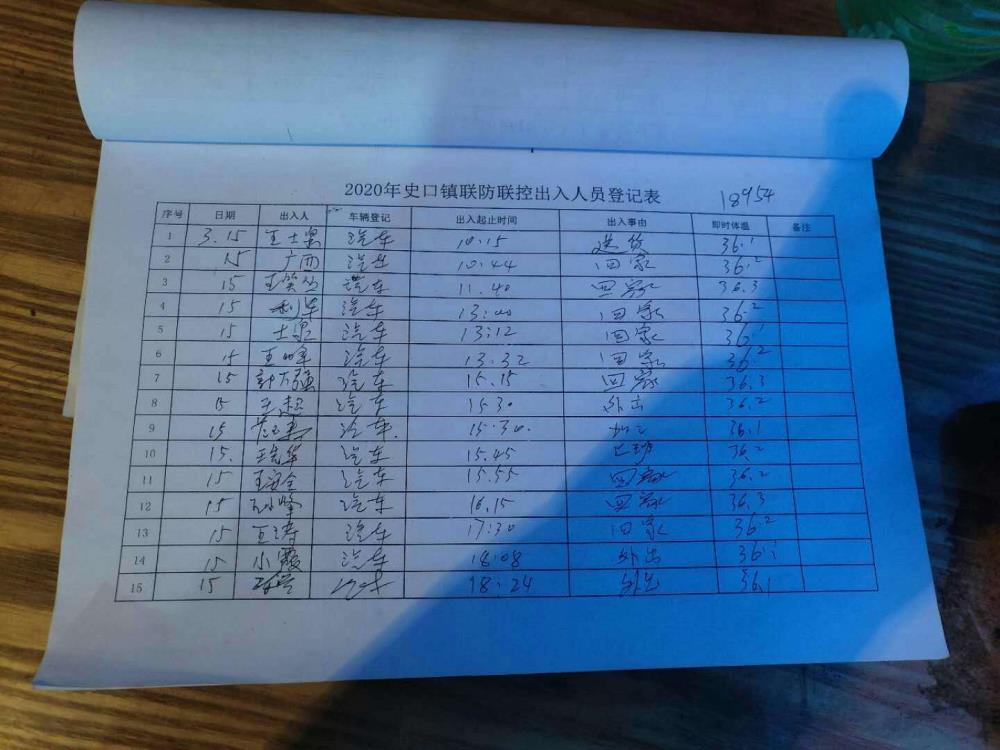 2020年史口镇联防联控出入人员登记表 18954
序号 日期 出入人 车辆登记 出入起止时间 出入事由 即时体温 备注
1 3.15 王士 汽车 10:15 送货 36.1
2 15 广西 汽车 10:44 回家 36.2
3 15 汽车 11.40 回家 36.3
4 15 利军 汽车 13:00 回家 36.2
5 15 汽车 13:12 回家 36.1
6 15 王峰 汽车 13:32 回家 36.2
7 15 汽车 15.15 回家 36.3
8 15 王超 汽车 15 30 外出 36.2
9 15 汽车. 15:30. 36.1
10 15. 汽车 15.45 上班 36.2
11 15 汽车 15.55 回家 36.2
12 15 汽车 16.15 回家 36.3
13 15 王涛 汽车 17:30 回家 36.2
14 15 小霞 汽车 18:08 外出 36.1
15 15 汽车 18:24 外出 36.1